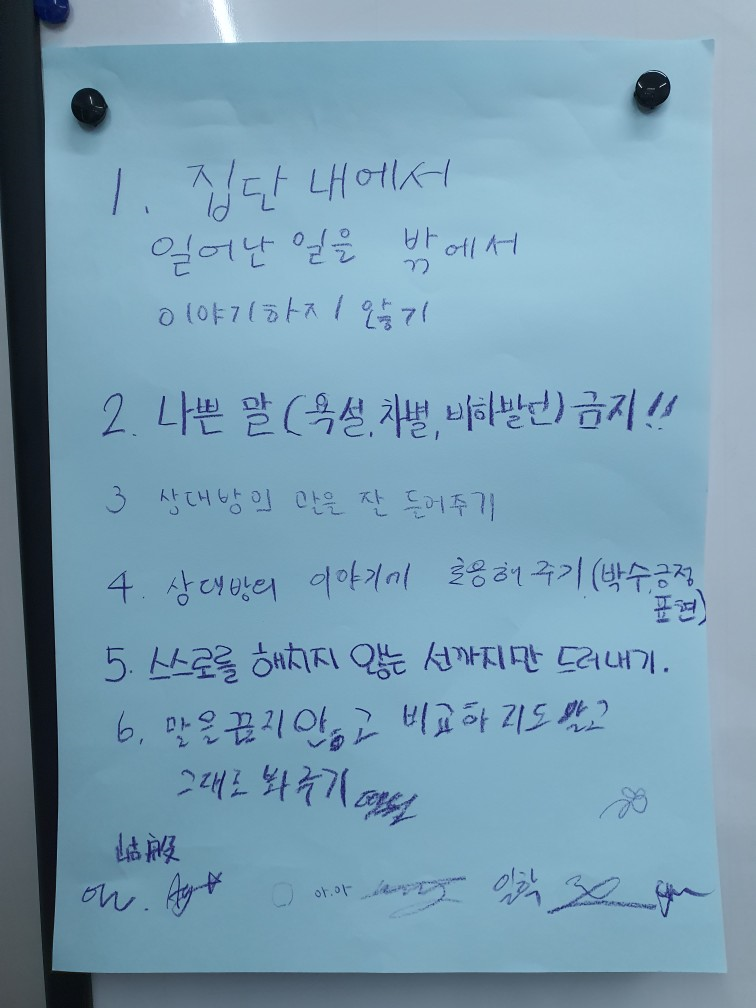 1. 집단 내에서
일어난 일을 밖에서
이야기하지 않기
2. 나쁜 말 (욕설, 차별, 비하발언) 금지!!
3 상대방의 말을 잘 들어주기
4. 상대방의 이야기에 호응해 주기 (박수, 긍정
표현)
5. 스스로를 해치지 않는 선까지만 드러내기.
6. 말을 끊지 않고 비교하지도 말고
그대로 봐주기
아.아